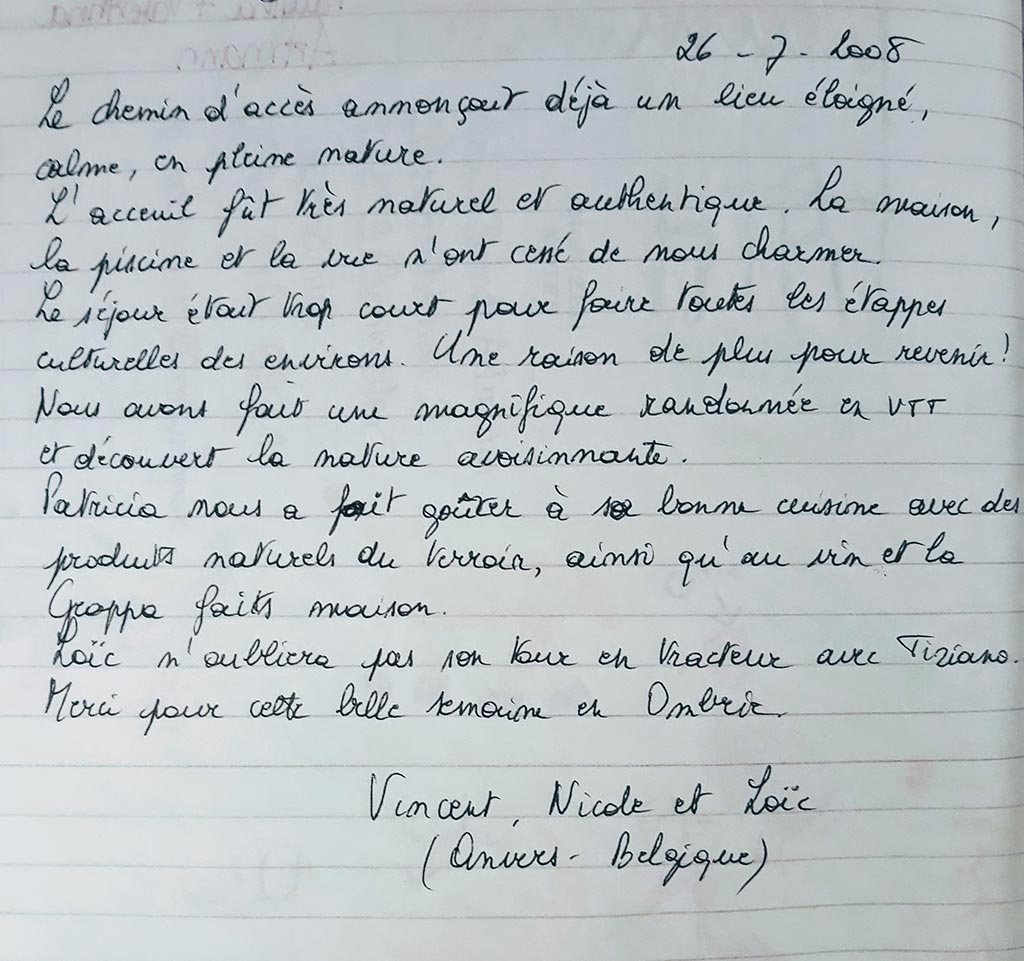 26 - 7 - 2008
Le chemin d'accès annonçait déjà un lieu éloigné,
calme, en pleine nature.
L'acceuil fût très naturel et authentique. La maison,
la piscine et la vue n'ont cessé de nous charmer.
Le séjour était trop court pour faire toutes les étappes
culturelles des environs. Une raison de plus pour revenir!
Nous avons fait une magnifique randonnée en VTT
et découvert la nature avoisinnante.
Patricia nous a fait goûter à sa bonne cuisine avec des
produits naturels du terroir, ainsi qu'au vin et la
Grappa faits maison.
Loïc n'oubliera pas son tour en tracteur avec Tiziano.
Merci pour cette belle semaine en Ombrie.
Vincent, Nicole et Loïc
(Anvers - Belgique)